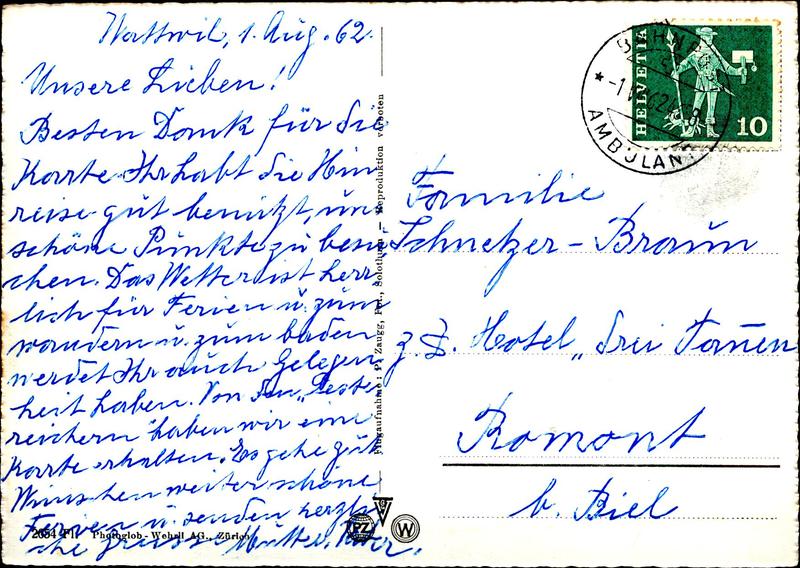 Wattwil, 1. Aug. 62.
Unsere Lieben!
Besten Dank für die
Karte. Ihr habt die Hin
reise gut benützt, um
schöne Punkte zu besu
chen. Das Wetter ist herr
lich für Ferien u. zum
wandern u. zum baden
werdet Ihr auch Gelegen
heit haben. Von den "Oeste
reichern" haben wir eine
Karte erhalten. Es gehe gut
Wünschen weiter schöne
Ferien u. senden herzli
che grüsse Mutter,
2654 Fli Photoglob-Wehrli AG., Zürich
Flugaufnahme: P. Zaugg, Fot., Solothurn – Reproduktion verboten
HELVETIA
10
BAHNPOST
AMBULANT
Familie
Schnetzer-Braun
z. Z. Hotel "drei Tannen
Romont
b. Biel
W